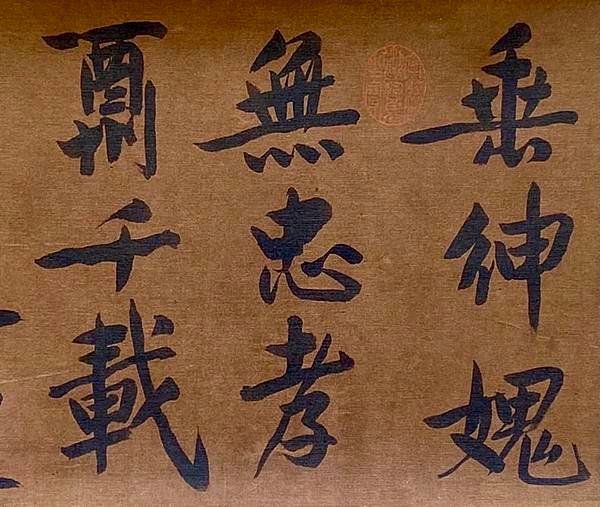 垂紳媿
無忠孝
千載